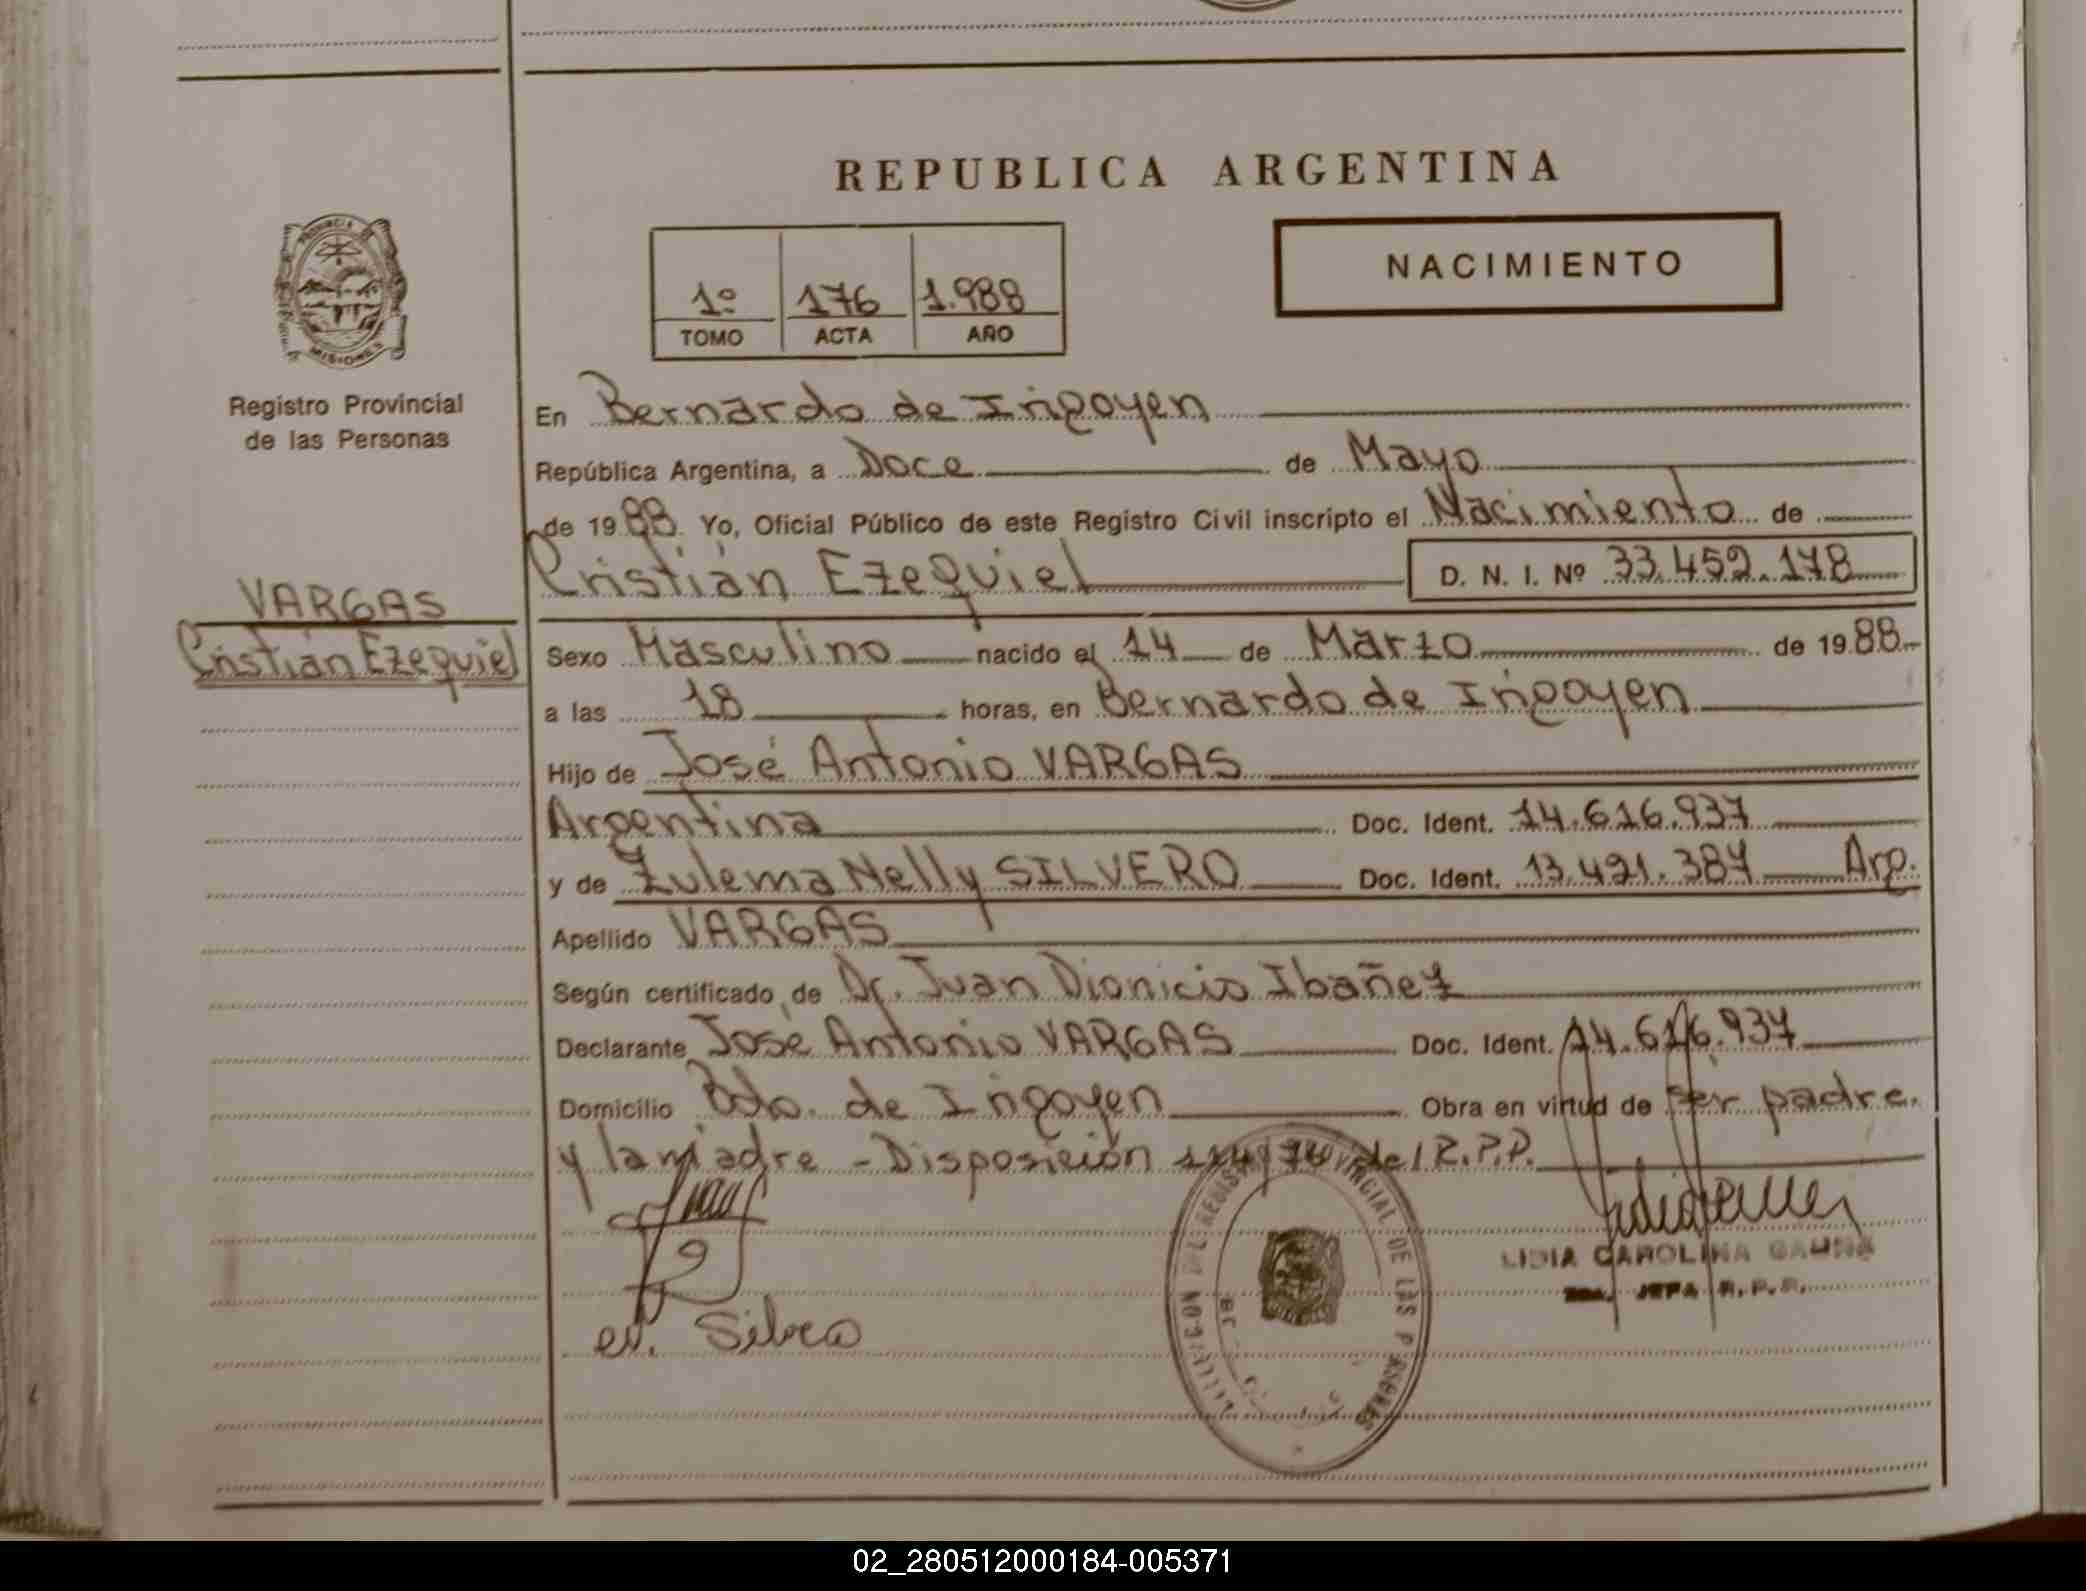 REPUBLICA ARGENTINA
NACIMIENTO
1º 176 1.988
TOMO ACTA AÑO
PROVINCIA
MISIONES
Registro Provincial
de las Personas
VARGAS
Cristian Ezequiel
En Bernardo de Irigoyen
República Argentina, a Doce de Mayo
de 1988. Yo, Oficial Público de este Registro Civil inscripto el Nacimiento de
Cristian Ezequiel D. N. I. Nº 33.452.178
Sexo Masculino nacido el 14 de Marzo de 1988.-
a las 18 horas, en Bernardo de Irigoyen
Hijo de José Antonio VARGAS
Argentina Doc. Ident. 14.616.937
y de Zulema Nelly SILVERO Doc. Ident. 13.421.387 Arg.
Apellido VARGAS
Según certificado de Dr. Juan Dionicio Ibañez
Declarante José Antonio VARGAS Doc. Ident. 14.616.937
Domicilio Bdo. de Irigoyen Obra en virtud de ser padre.
y la madre - Disposición del R.P.P.
LIDIA CAROLINA
JEFA R.P.P.
PROVINCIAL DE LAS PERSONAS
02_280512000184-005371